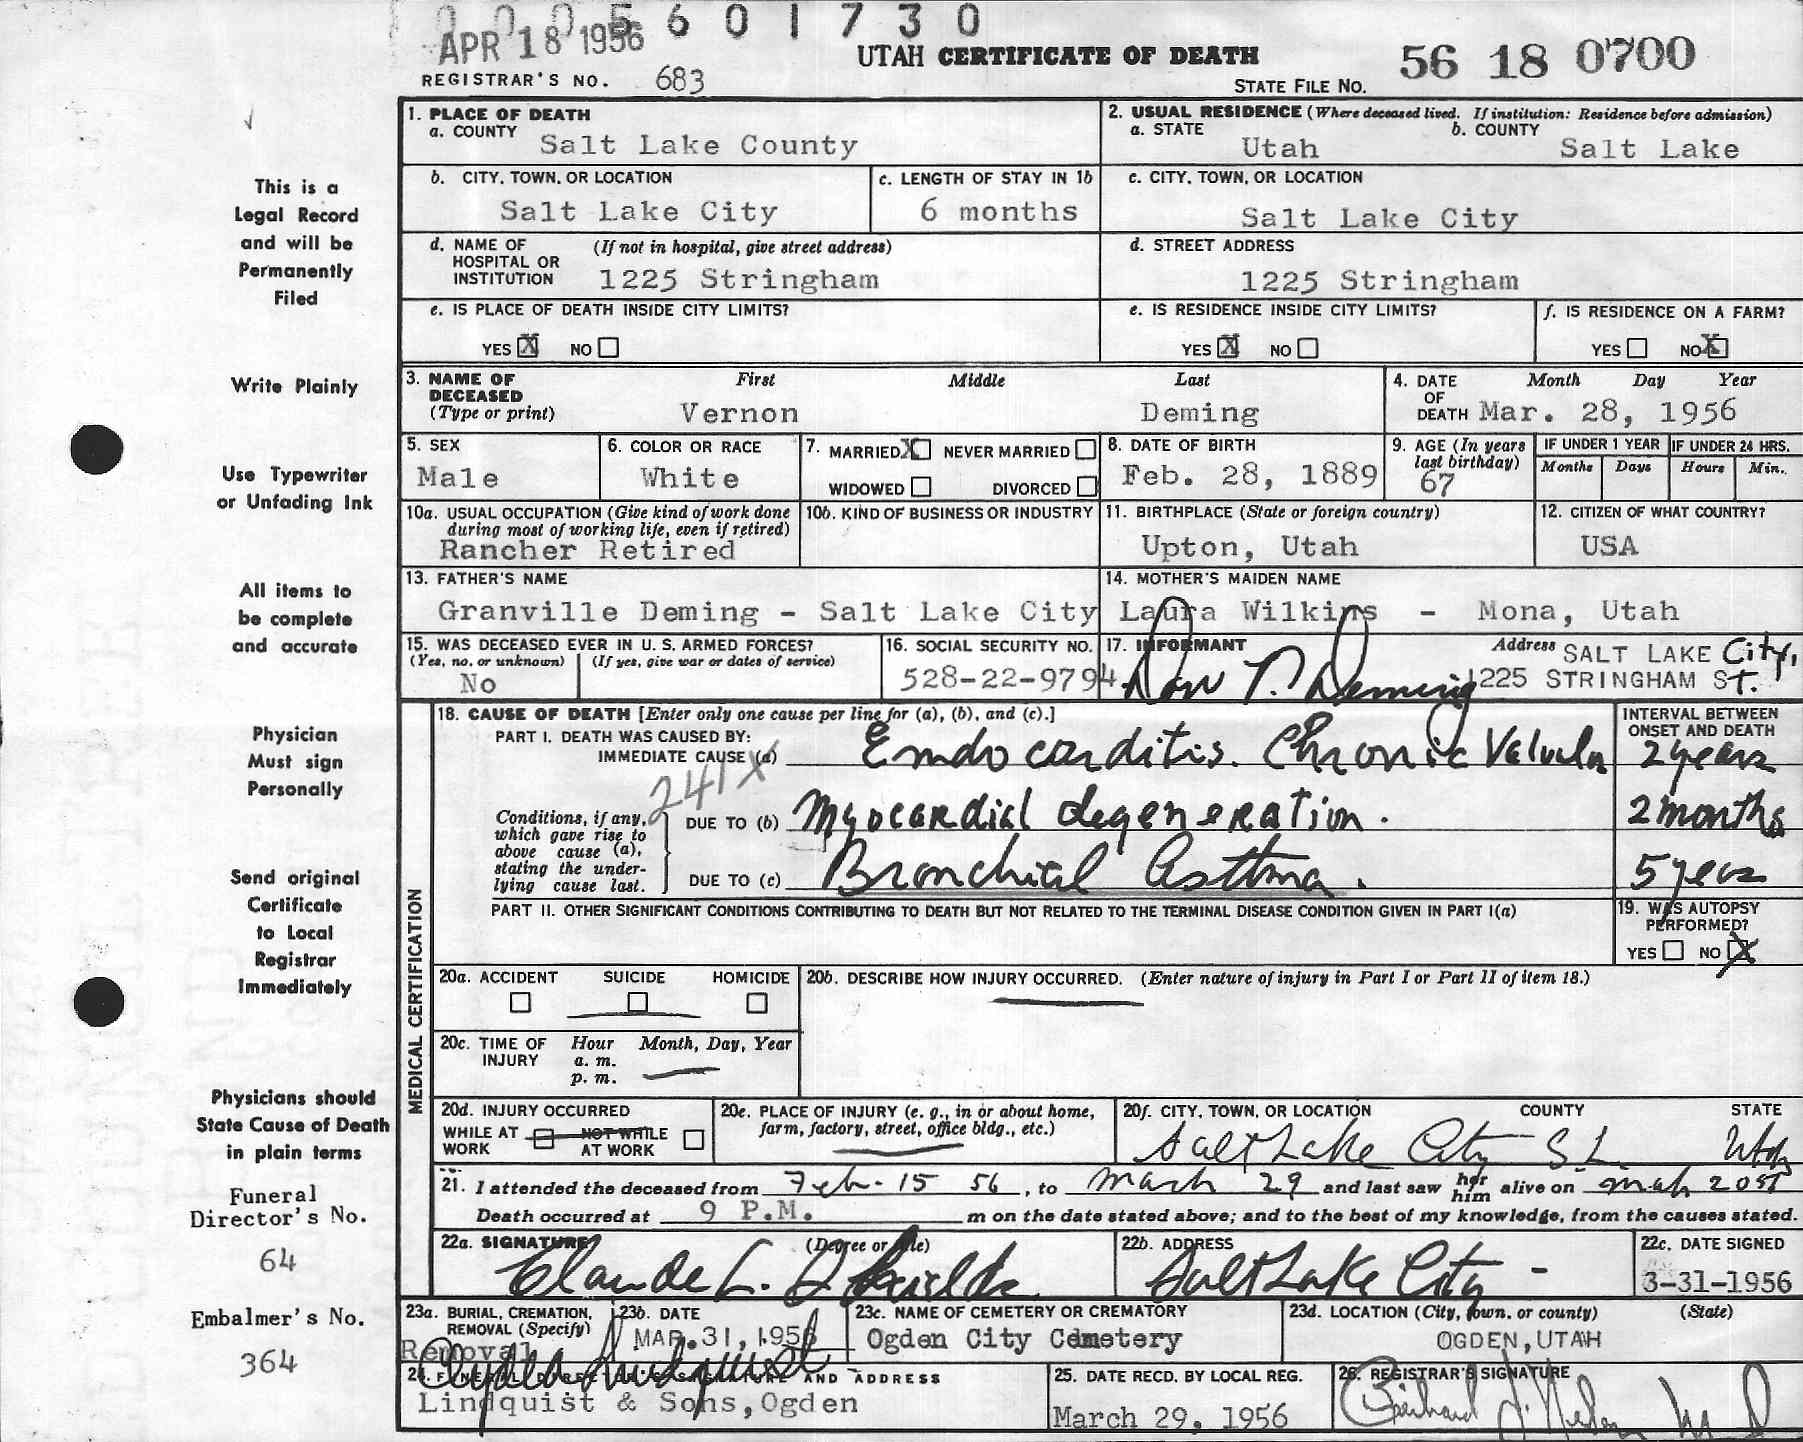 0005601730
APR 18 1956
UTAH CERTIFICATE OF DEATH
56 18 0700
REGISTRAR'S NO. 683
STATE FILE NO.
1. PLACE OF DEATH
a. COUNTY
Salt Lake County
2. USUAL RESIDENCE (Where deceased lived. If institution: Residence before admission)
a. STATE
b. COUNTY
Utah
Salt Lake
b. CITY, TOWN, OR LOCATION
Salt Lake City
c. LENGTH OF STAY IN 1b
6 months
c. CITY, TOWN, OR LOCATION
Salt Lake City
d. NAME OF HOSPITAL OR INSTITUTION
(If not in hospital, give street address)
1225 Stringham
d. STREET ADDRESS
1225 Stringham
e. IS PLACE OF DEATH INSIDE CITY LIMITS?
YES X NO
e. IS RESIDENCE INSIDE CITY LIMITS?
YES X NO
f. IS RESIDENCE ON A FARM?
YES NO X
3. NAME OF DECEASED
(Type or print)
First
Middle
Last
Vernon
Deming
4. DATE OF DEATH
Month Day Year
Mar. 28, 1956
5. SEX
Male
6. COLOR OR RACE
White
7. MARRIED X NEVER MARRIED
WIDOWED DIVORCED
8. DATE OF BIRTH
Feb. 28, 1889
9. AGE (In years last birthday)
67
IF UNDER 1 YEAR
Months Days
IF UNDER 24 HRS.
Hours Min.
10a. USUAL OCCUPATION (Give kind of work done
during most of working life, even if retired)
Rancher Retired
10b. KIND OF BUSINESS OR INDUSTRY
11. BIRTHPLACE (State or foreign country)
Upton, Utah
12. CITIZEN OF WHAT COUNTRY?
USA
13. FATHER'S NAME
Granville Deming - Salt Lake City
14. MOTHER'S MAIDEN NAME
Laura Wilkins - Mona, Utah
15. WAS DECEASED EVER IN U. S. ARMED FORCES?
(Yes, no, or unknown) (If yes, give war or dates of service)
No
16. SOCIAL SECURITY NO.
528-22-9794
17. INFORMANT
Don V. Deming
Address SALT LAKE City,
1225 STRINGHAM ST.
MEDICAL CERTIFICATION
18. CAUSE OF DEATH [Enter only one cause per line for (a), (b), and (c).]
PART I. DEATH WAS CAUSED BY:
IMMEDIATE CAUSE (a)
Endocarditis. Chronic Valvular
INTERVAL BETWEEN ONSET AND DEATH
2 years
241X
Conditions, if any,
which gave rise to
above cause (a),
stating the under-
lying cause last.
DUE TO (b) Myocardial degeneration.
2 months
DUE TO (c) Bronchial Asthma.
5 years
PART II. OTHER SIGNIFICANT CONDITIONS CONTRIBUTING TO DEATH BUT NOT RELATED TO THE TERMINAL DISEASE CONDITION GIVEN IN PART I(a)
19. WAS AUTOPSY PERFORMED?
YES NO X
20a. ACCIDENT SUICIDE HOMICIDE
20b. DESCRIBE HOW INJURY OCCURRED. (Enter nature of injury in Part I or Part II of item 18.)
20c. TIME OF INJURY
Hour Month, Day, Year
a. m.
p. m.
20d. INJURY OCCURRED
WHILE AT WORK
NOT WHILE AT WORK
20e. PLACE OF INJURY (e. g., in or about home,
farm, factory, street, office bldg., etc.)
20f. CITY, TOWN, OR LOCATION COUNTY STATE
Salt Lake City S. L. Utah
21. I attended the deceased from Feb. 15 56, to March 29 and last saw her him alive on
Death occurred at 9 P.M. m on the date stated above; and to the best of my knowledge, from the causes stated.
22a. SIGNATURE (Degree or title)
Claude L. Shields
22b. ADDRESS
Salt Lake City -
22c. DATE SIGNED
3-31-1956
23a. BURIAL, CREMATION,
REMOVAL (Specify)
Removal
23b. DATE
MAR.31,1956
23c. NAME OF CEMETERY OR CREMATORY
Ogden City Cemetery
23d. LOCATION (City, town, or county) (State)
OGDEN,UTAH
24. FUNERAL DIRECTOR'S SIGNATURE AND ADDRESS
Lindquist & Sons,Ogden
25. DATE RECD. BY LOCAL REG.
March 29, 1956
26. REGISTRAR'S SIGNATURE
This is a
Legal Record
and will be
Permanently
Filed
Write Plainly
Use Typewriter
or Unfading Ink
All items to
be complete
and accurate
Physician
Must sign
Personally
Send original
Certificate
to Local
Registrar
Immediately
Physicians should
State Cause of Death
in plain terms
Funeral
Director's No.
64
Embalmer's No.
364